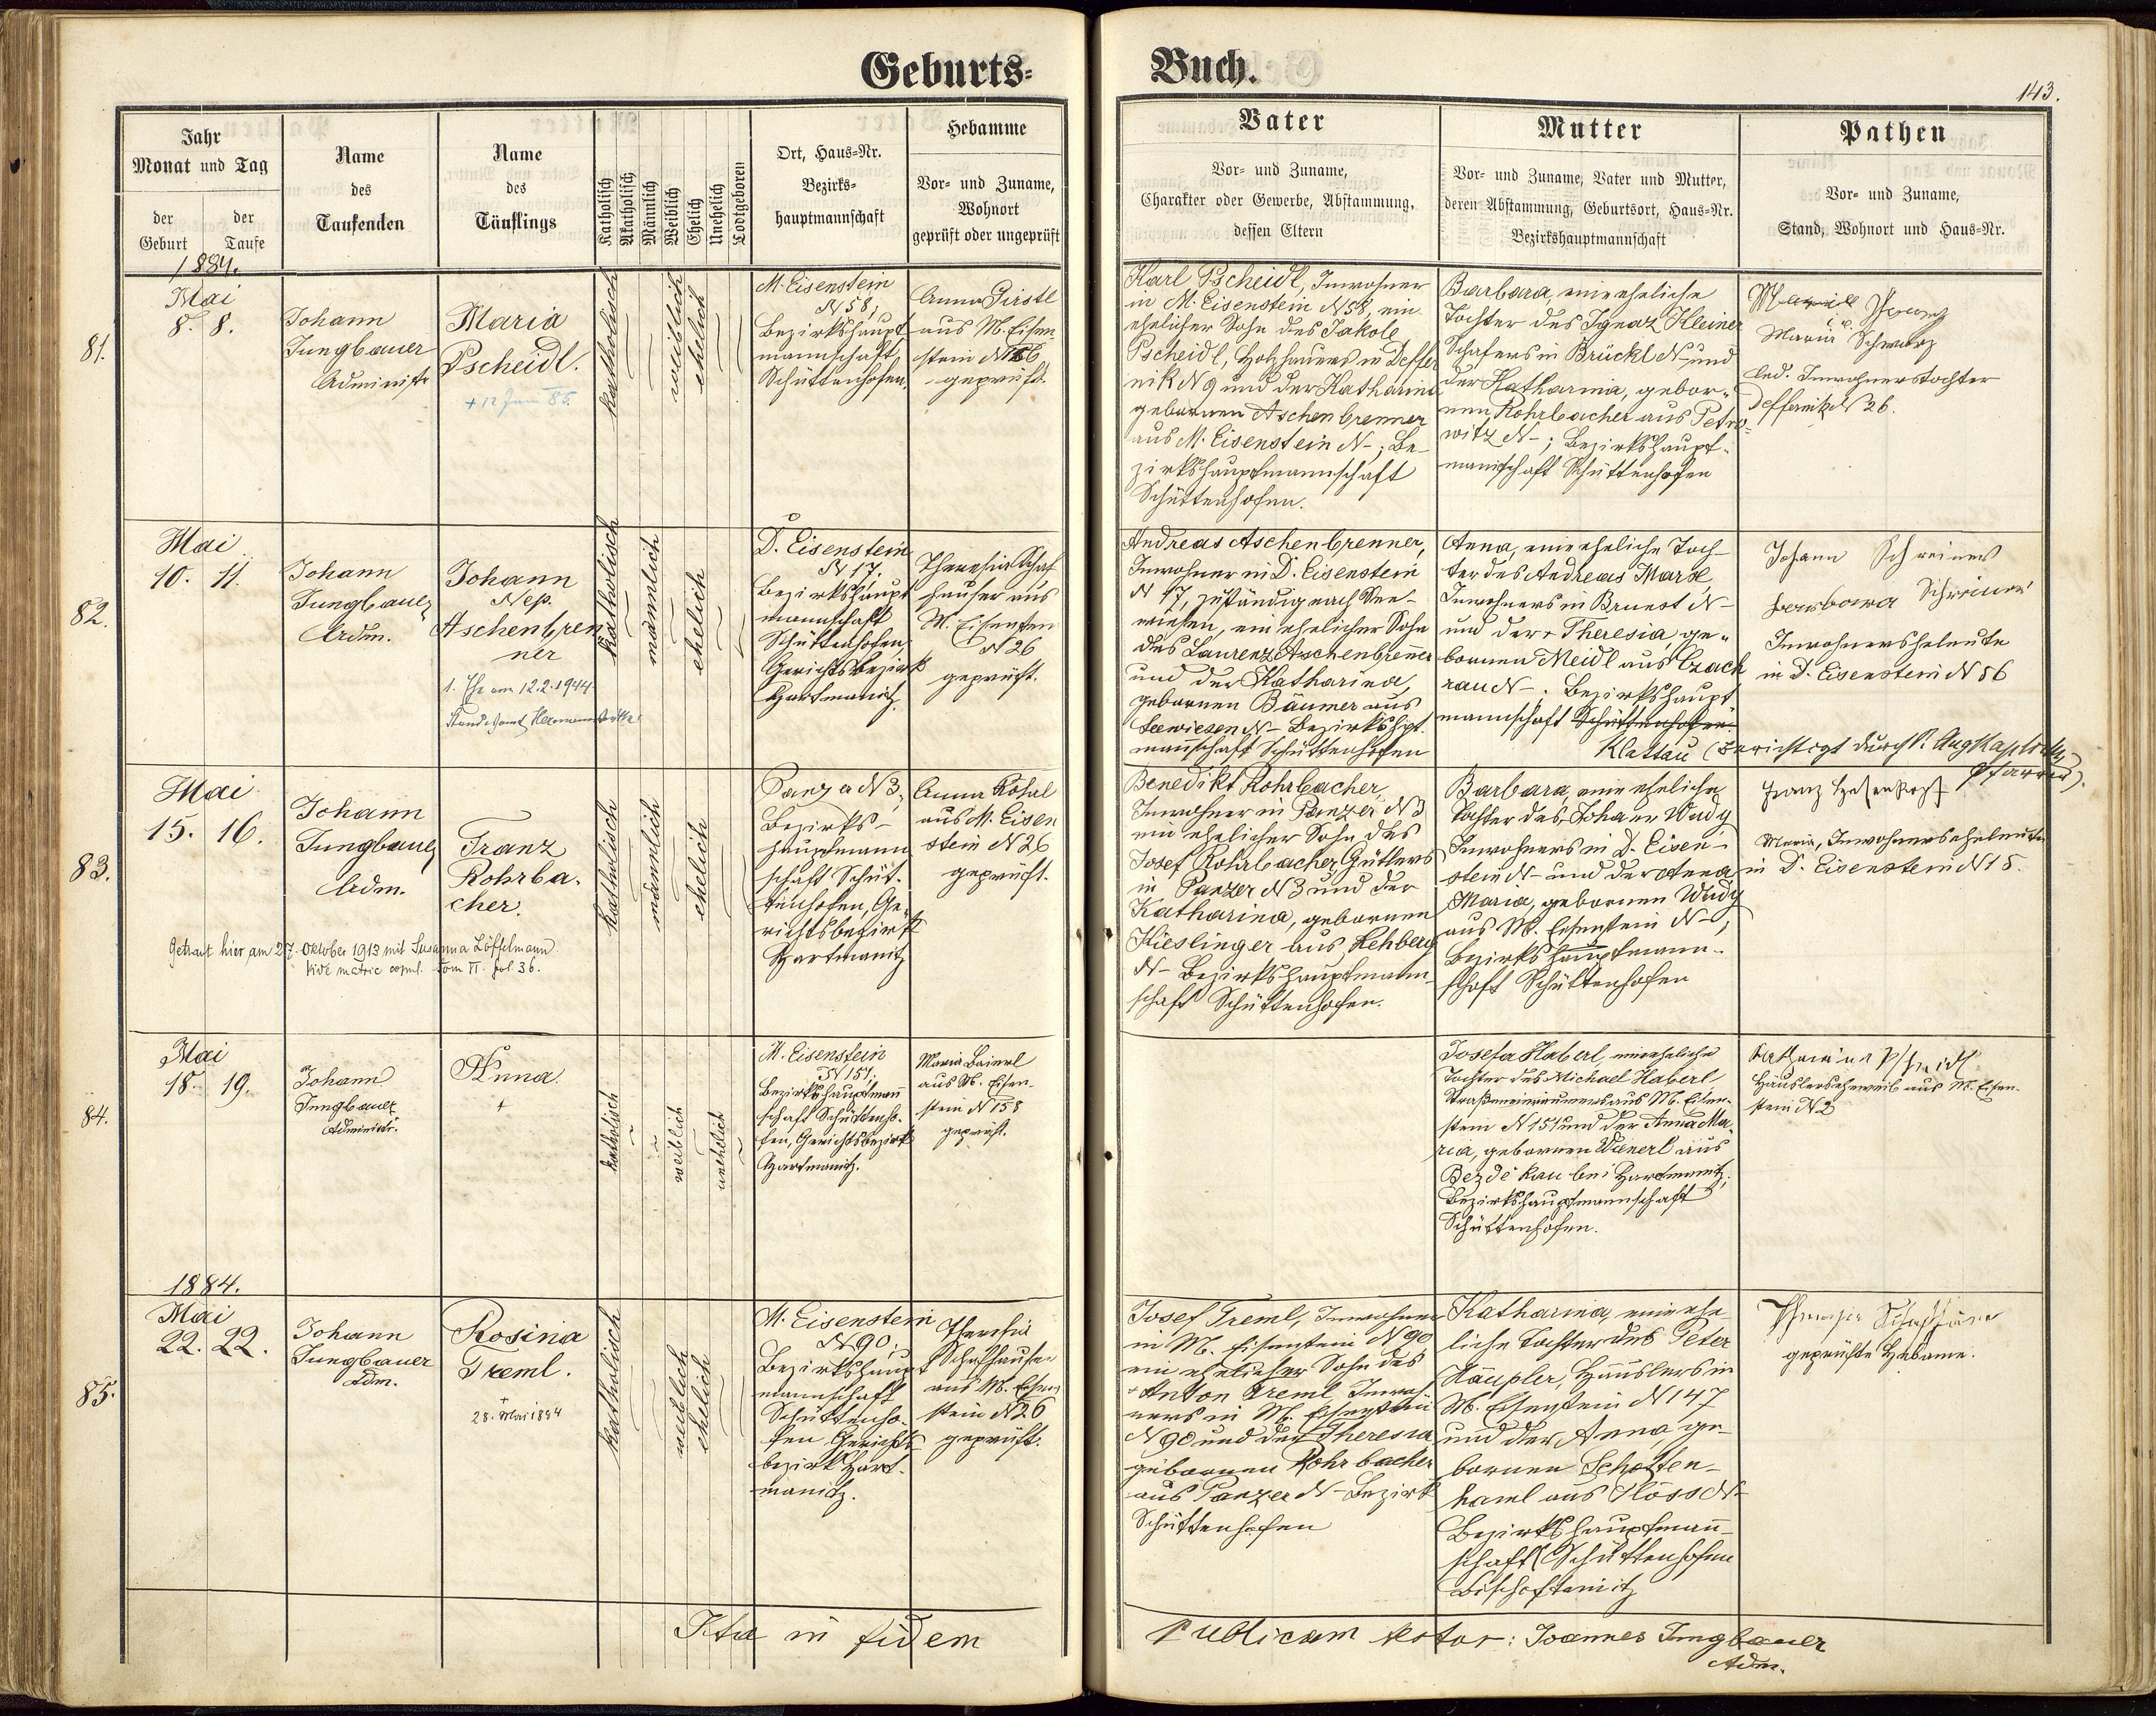 Geburts-
Buch.
143.
Jahr
Monat und Tag
der Geburt
der Taufe
Name
des
Taufenden
Name
des
Täuflings
Katholisch
Akatholisch
Männlich
Weiblich
Ehelich
Unehelich
Todtgeboren
Ort, Haus-Nr.
Bezirks-
hauptmannschaft
Hebamme
Vor- und Zuname,
Wohnort
geprüft oder ungeprüft
Vater
Vor- und Zuname,
Charakter oder Gewerbe, Abstammung,
dessen Eltern
Mutter
Vor- und Zuname, Vater und Mutter,
deren Abstammung, Geburtsort, Haus-Nr.
Bezirkshauptmannschaft
Pathen
Vor- und Zuname,
Stand, Wohnort und Haus-Nr.
1884.
81.
Mai
8. 8.
Johann
Jungbauer
Administr
Maria
Pscheidl.
+ 12 Juni 85.
katholisch
weiblich
ehelich
M. Eisenstein
N 58,
Bezirkshaupt
mannschaft
Schüttenhofen.
Anna
aus M. Eisen
stein
geprüft.
Karl Pscheidl, Inwohner
in M. Eisenstein N 58, ein
ehelicher Sohn des Jakob
Pscheidl, Holzhauers in Deffer
nik N 9 und der Katharina
gebornen Aschenbrenner
aus M. Eisenstein N -; Be-
zirkshauptmannschaft
Schüttenhofen.
Barbara, eine eheliche
Tochter des Ignaz Kleiner
Schafers in Brückl N - und
der Katharina, gebor-
nen Rohrbacher aus Petro-
witz N -; Bezirkshaupt-
mannschaft Schüttenhofen
Maria Schwarz
led. Inwohnerstochter
Deffernik N 26.
82.
Mai
10. 11.
Johann
Jungbauer
Adm.
Johann
Nep.
Aschenbren
ner
1. Ehe am 12.2.1944
Standesamt
katholisch
männlich
ehelich
D. Eisenstein
N 17,
Bezirkshaupt
mannschaft
Schüttenhofen,
Gerichtsbezirk
Hartmanitz.
Theresia Schaf
hauser aus
M. Eisenstein
N 26
geprüft.
Andreas Aschenbrenner,
Inwohner in D. Eisenstein
N 17, zuständig nach See-
wiesen, ein ehelicher Sohn
des Laurenz Aschenbrenner
und der Katharina,
gebornen Bäumer aus
Seewiesen N - Bezirkshpt
mannschaft Schüttenhofen
Anna, eine eheliche Toch-
ter des Andreas Marx,
Inwohners in Brunst N -
und der + Theresia, ge-
bornen Meidl aus Czach
rau N -. Bezirkshaupt
mannschaft Schüttenhofen.
Klattau (Berichtigt durch P. Aug
Pfarrer).
Johann Schreiner
Barbara Schreiner
Inwohnerseheleute
in D. Eisenstein N 56
83.
Mai
15. 16.
Johann
Jungbauer
Adm.
Franz
Rohrba-
cher.
Getraut hier am 27. Oktober 1913 mit Susanna Löffelmann
vide matric copul. Tom II. fol. 36.
katholisch
männlich
ehelich
Panzer N 3,
Bezirks-
hauptmann
schaft Schüt-
tenhofen, Ge-
richtsbezirk
Hartmanitz
Anna
aus M. Eisen
stein N 26
geprüft.
Benedikt Rohrbacher,
Inwohner in Panzer N 3
ein ehelicher Sohn des
Josef Rohrbacher, Gütlers
in Panzer N 3 und der
Katharina, gebornen
Kieslinger aus Rehberg
N - Bezirkshauptmann-
schaft Schüttenhofen.
Barbara, eine eheliche
Tochter des Johann Wudy
Inwohners in D. Eisen-
stein N - und der Anna
Maria, gebornen Wudy
aus M. Eisenstein N -;
Bezirkshauptmann-
schaft Schüttenhofen
Franz
Maria, Inwohnerseheleute
in D. Eisenstein N 15.
84.
Mai
18. 19.
Johann
Jungbauer
Administr.
Anna.
+
katholisch
weiblich
unehelich
M. Eisenstein
N 151,
Bezirkshauptmann
schaft Schüttenho-
fen, Gerichtsbezirk
Hartmanitz.
Maria
aus M. Eisen-
stein N 158
geprüft.
Josefa Haberl, eine eheliche
Tochter des Michael Haberl,
Straßeneinräumers aus M. Eisen-
stein N 151 und der Anna Ma-
ria, gebornen Wienerl aus
Bezdékau bei Hartmanitz,
Bezirkshauptmannschaft
Schüttenhofen.
Katharina
Häuslerseheweib aus M. Eisen-
stein N 2
1884.
85.
Mai
22. 22.
Johann
Jungbauer
Adm.
Rosina
Treml.
+
28. Mai 1884
katholisch
weiblich
ehelich
M. Eisenstein
N 90,
Bezirkshaupt
mannschaft
Schüttenho-
fen, Gerichts-
bezirk Hart-
manitz.
Theresia
Schafhauser
aus M. Eisen
stein N 26
geprüft.
Josef Treml, Inwohner
in M. Eisenstein N 90
ein ehelicher Sohn des
+ Anton Treml, Inwoh-
ners in M. Eisenstein
N 90 und der Theresia
gebornen Rohrbacher
aus Panzer N - Bezirk
Schüttenhofen
Katharina, eine ehe-
liche Tochter des Peter
Häuslers in
M. Eisenstein N 147
und der Anna, ge-
bornen Schotten-
haml aus Plöss N -
Bezirkshauptmann-
schaft Schüttenhofen
Bischofteinitz
Theresia Schafhauser
geprüfte Hebame.
Ita in fidem
publicam testor: Joannes Jungbauer
Adm.